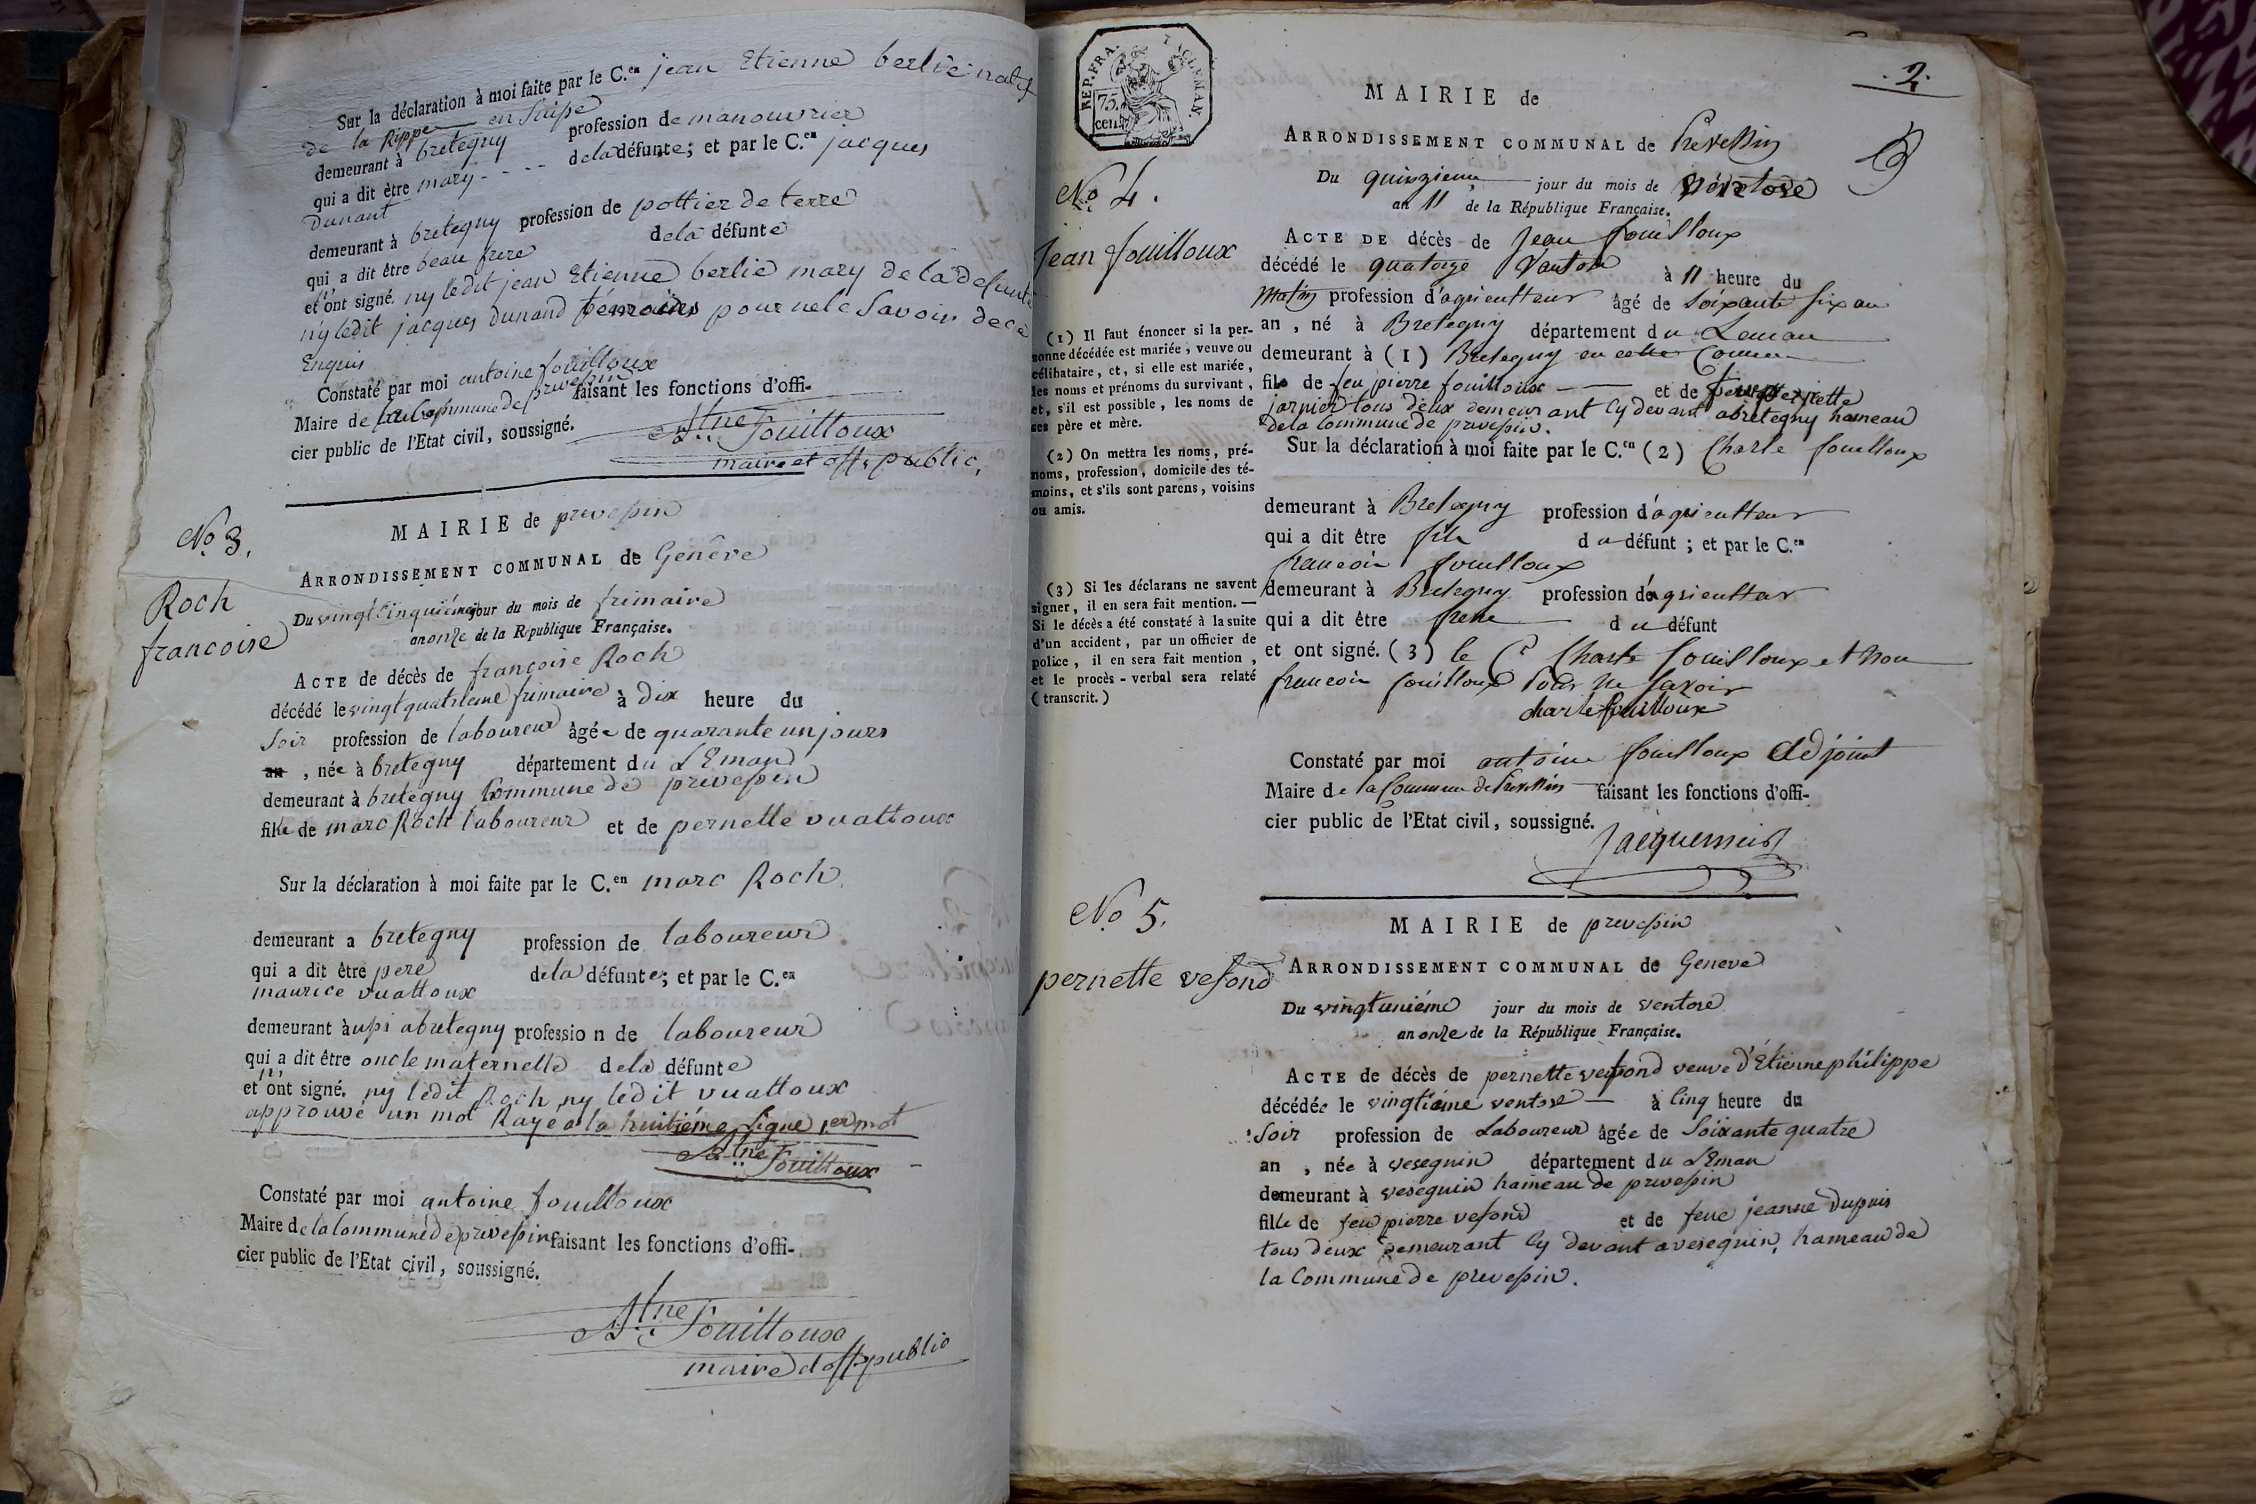 Sur la déclaration à moi faite par le C.en jean Etienne berlie natif
de la Rippe en Suise
demeurant à bretegny profession de manouvrier
qui a dit être mary - - - - de la défunte; et par le C.en jacques
Dunant
demeurant à bretegny profession de pottier de terre
qui a dit être beau frere de la défunte
et n'ont signé. ny ledit jean Etienne berlie mary de la defunte
ny ledit jacques Dunand pour ne le Savoir de ce
Enquis
Constaté par moi antoine fouilloux
Maire de la Commune de prevessin faisant les fonctions d'offi-
cier public de l'Etat civil, soussigné.
Atne Fouilloux
maire et off. public,
No. 3.
Roch
francoise
MAIRIE de prevessin
ARRONDISSEMENT COMMUNAL de Genêve
Du vingt Cinquiéme jour du mois de frimaire
an onze de la République Française.
ACTE de décès de françoise Roch
décédé le vingt quatrieme frimaire à dix heure du
Soir profession de laboureur âgée de quarante un jours
an , née à bretegny département du LEman
demeurant à bretegny Commune de prevessin
fille de marc Roch laboureur et de pernette vuattoux
Sur la déclaration à moi faite par le C.en marc Roch
demeurant a bretegny profession de laboureur
qui a dit être pere de la défunte; et par le C.en
maurice vuattoux
demeurant à aussi a bretegny profession de laboureur
qui a dit être oncle maternelle de la défunte
et n'ont signé. ny ledit Roch ny ledit vuattoux
approuvé un mot Rayé a la huitiéme Ligne 1er mot
Atne Fouilloux
Constaté par moi antoine fouilloux
Maire de la Commune de prevessin faisant les fonctions d'offi-
cier public de l'Etat civil, soussigné.
Atne Fouilloux
maire et off. public
REP. FRA.
75.
cent.
. 2.
No. 4.
jean fouilloux
MAIRIE de
ARRONDISSEMENT COMMUNAL de Prevessin
Du quinzieme jour du mois de Ventose
an 11 de la République Française.
ACTE DE décès de Jean fouilloux
décédé le quatorze Vantose à 11 heure du
Matin profession d'agriculteur âgé de Soixante six an
an , né à Bretegny département du Leman
demeurant à (1) Bretegny en cette Commune
fils de feu pierre fouilloux et de pernette
jarnier tous deux demeurant Cy devant a bretegny hameau
de la Commune de prevessin.
Sur la déclaration à moi faite par le C.en (2) Charle fouilloux
demeurant à Bretegny profession d'agriculteur
qui a dit être fils du défunt ; et par le C.en
francois fouilloux
demeurant à Bretegny profession d'agriculteur
qui a dit être frere du défunt
et ont signé. (3) le Cn Charle fouilloux et non
francois fouilloux pour ne savoir
charle fouilloux
Constaté par moi antoine fouilloux adjoint
Maire de la Commune de Prevessin faisant les fonctions d'offi-
cier public de l'Etat civil, soussigné.
(1) Il faut énoncer si la per-
sonne décédée est mariée, veuve ou
célibataire, et, si elle est mariée,
les noms et prénoms du survivant,
et, s'il est possible, les noms de
ses père et mère.
(2) On mettra les noms, pré-
noms, profession, domicile des té-
moins, et s'ils sont parens, voisins
ou amis.
(3) Si les déclarans ne savent
signer, il en sera fait mention. —
Si le décès a été constaté à la suite
d'un accident, par un officier de
police, il en sera fait mention,
et le procès-verbal sera relaté
(transcrit.)
No. 5.
pernette vesond
MAIRIE de prevessin
ARRONDISSEMENT COMMUNAL de Geneve
Du vingtuniéme jour du mois de ventose
an onze de la République Française.
ACTE de décès de pernette vesond veuve d'Etienne philippe
décédée le vingtiéme ventose à Cinq heure du
Soir profession de Laboureur âgée de Soixante quatre
an , née à vesegnin département du LEman
demeurant à vesegnin hameau de prevessin
fille de feu pierre vesond et de feue jeanne Dupuis
tous deux Demeurant Cy devant a vesegnin, hameau de
la Commune de prevessin.